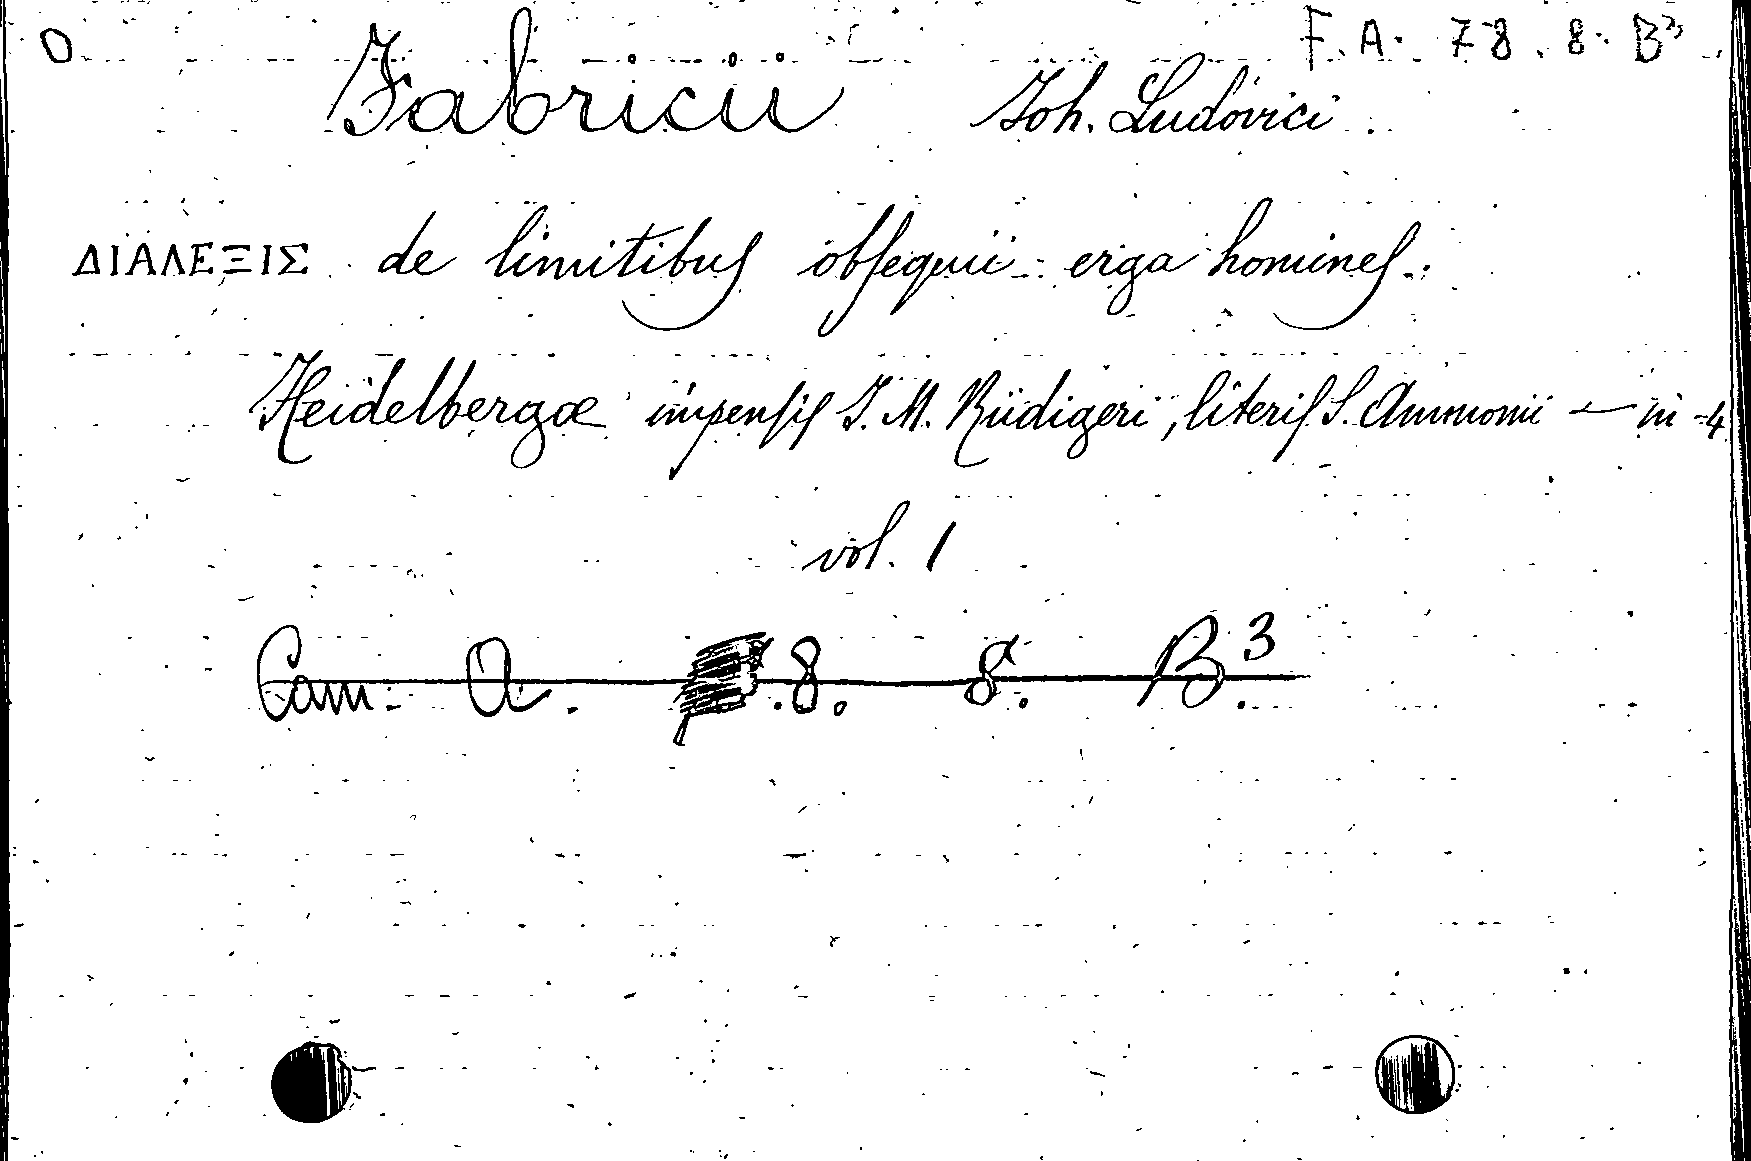 D F. A. 78. 8. B³
Fabricii Joh. Ludovici
ΔΙΑΛΕΞΙΣ de limitibus obsequii erga homines.
Heidelbergæ impensis J. M. Rüdigeri, literis S. Ammonii — in-4
vol. 1
Cam. A. .8. 8. B.³